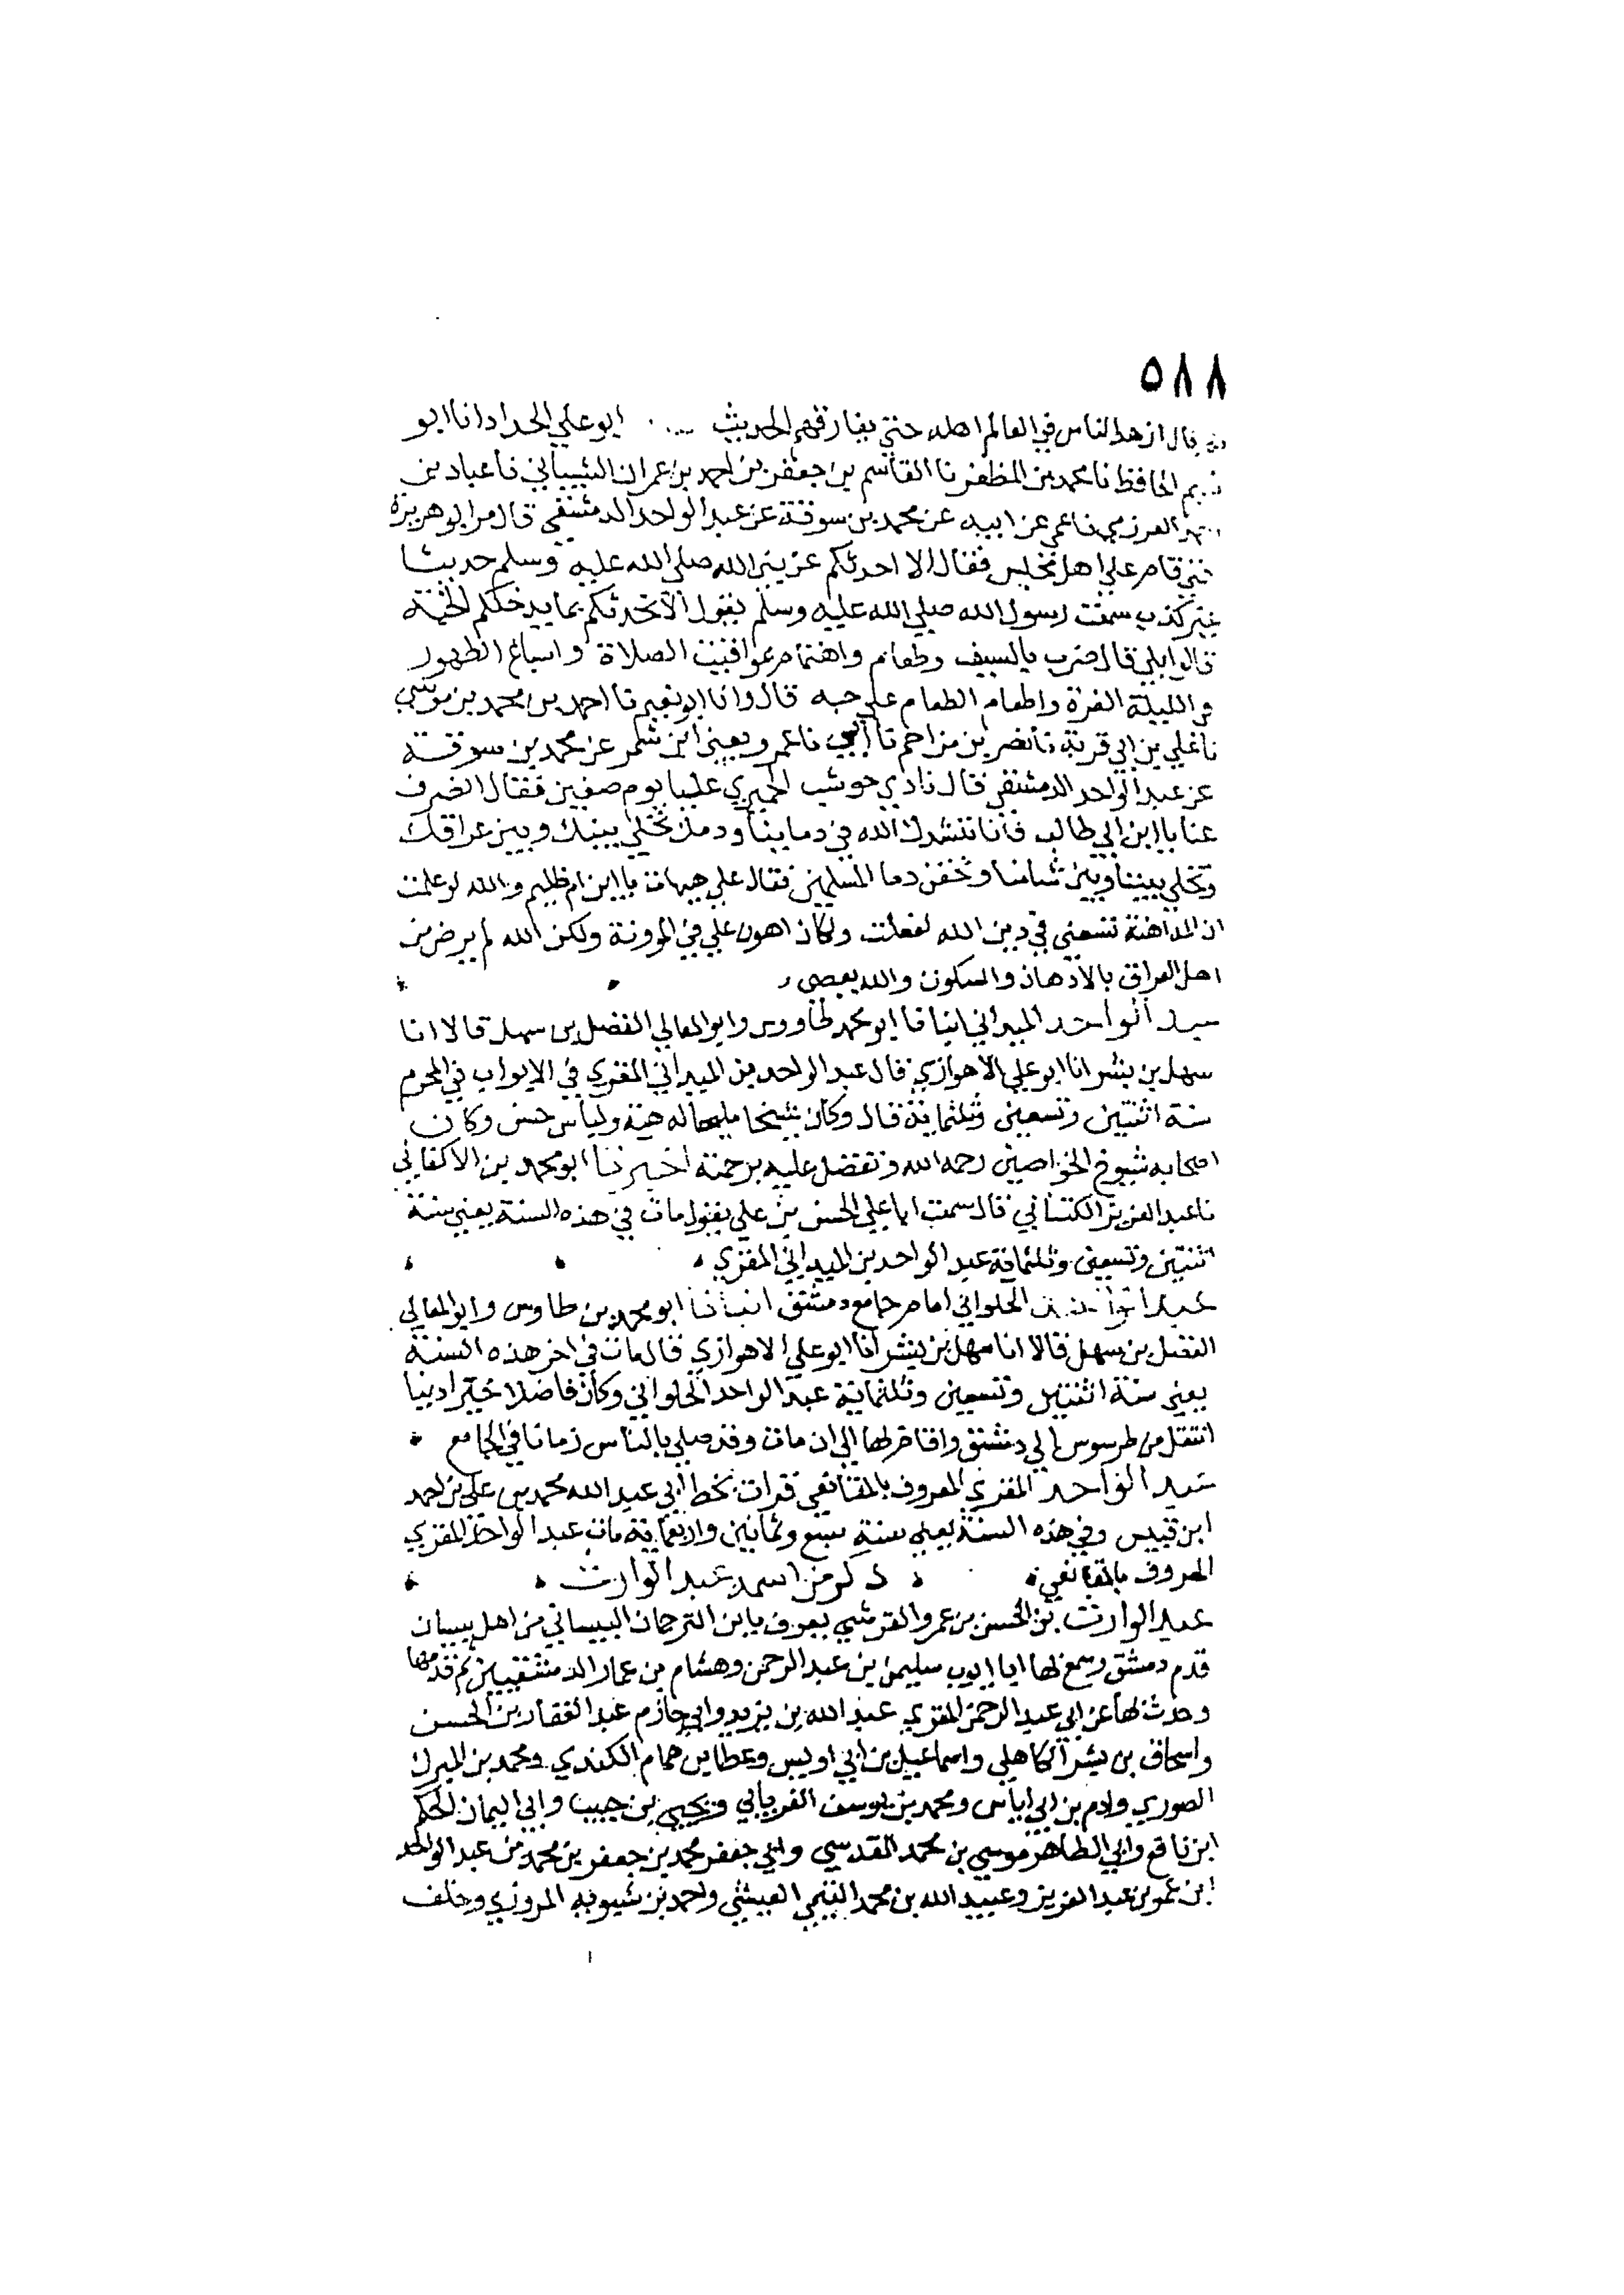 ٥٨٨
قال ازهد الناس في العالم اهله حتي يفارقهم الحديث ابو علي الحداد انا ابو
الحافظ نا محمد بن المظفر نا القاسم بن جعفر بن احمد بن عمران الشيباني نا عباد بن
العرزمي نا عمي عن ابيه عن محمد بن سوقة عن عبد الواحد الدمشقي قال مر ابو هريرة
قام علي اهل مجلس فقال الا احدثكم عن نبي الله صلي الله عليه وسلم حديثا
غير كذب سمعت رسول الله صلي الله عليه وسلم يقول الا تحدثكم بما يدخلكم الجنة
قال ابلي قال ضرب بالسيف وطعام واهتمام بمواقيت الصلاة واسباغ الطهور
في الليلة القرة واطعام الطعام علي حبه قال وانا ابو نعيم نا احمد بن محمد بن موسي
نا علي بن ابي قربة نا نصر بن مزاحم نا ابي نا عمرو يعني ابن شمر عن محمد بن سوقة
عن عبد الواحد الدمشقي قال نادي حوشب الحميري عليا يوم صفين فقال انصرف
عنا يا ابن ابي طالب فانا ننشدك الله في دماينا ودمك نخلي بينك وبين عراقك
وتخلي بيننا وبين شامنا وتحقن دما المسلمين فقال علي هيهات يا ابن ام ظليم والله لو علمت
ان المداهنة تسعني في دين الله لفعلت ولكان اهون علي في المونة ولكن الله لم يرض من
اهل العراق بالادهان والسكون والله يعصي
عبد الواحد الميداني انبانا ابو محمد طاووس وابو المعالي الفضل بن سهل قالا انا
سهل بن بشر انا ابو علي الاهوازي قال عبد الواحد بن الميداني المقري في الابواب في المحرم
سنة اثنتين وتسعين وثلثماية قال وكان شيخا مليحا له هيئة ولباس حسن وكان
اصحابه شيوخ الخواصين رحمه الله وتفضل عليه برحمته اخبرنا ابو محمد بن الاكفاني
نا عبد العزيز الكتاني قال سمعت ابا علي الحسن بن علي يقول مات في هذه السنة يعني سنة
اثنتين وتسعين وثلثماية عبد الواحد بن الميداني المقري
عبد الواحد الحلواني امام جامع دمشق انبانا ابو محمد بن طاوس وابو المعالي
الفضل بن سهل قالا انا سهل بن بشر انا ابو علي الاهوازي قال مات في اخر هذه السنة
يعني سنة اثنتين وتسعين وثلثماية عبد الواحد الحلواني وكان فاضلا خيرا دينا
انتقل من طرسوس الي دمشق واقام بها الي ان مات وقد صلي بالناس زمانا في الجامع
عبد الواحد المقري المعروف بالمقانعي قرات بخط ابي عبد الله محمد بن علي بن احمد
ابن قبيس وفي هذه السنة يعني سنة سبع وثمانين واربعماية مات عبد الواحد المقري
المعروف بالمقانعي ذكر من اسمه عبد الوارث
عبد الوارث بن الحسن بن عمرو القرشي يعرف بابن الترجمان البيساني من اهل بيسان
قدم دمشق وسمع بها ابا ايوب سليمن بن عبد الرحمن وهشام بن عمار الدمشقيين ثم قدمها
وحدث بها عن ابي عبد الرحمن المقري عبد الله بن يزيد وابي حازم عبد الغفار بن الحسن
واسحاق بن بشر الكاهلي واسماعيل بن ابي اويس وعطا بن همام الكندي ومحمد بن المبرك
الصوري وادم بن ابي اياس ومحمد بن يوسف الفريابي ويحيي بن حبيب وابي اليمان الحكم
ابن نافع وابي الطاهر موسي بن محمد المقدسي وابي جعفر محمد بن جعفر بن محمد بن عبد الواحد
ابن عمر بن عبد العزيز وعبيد الله بن محمد التيمي العيشي واحمد بن شبويه المروزي وخلف